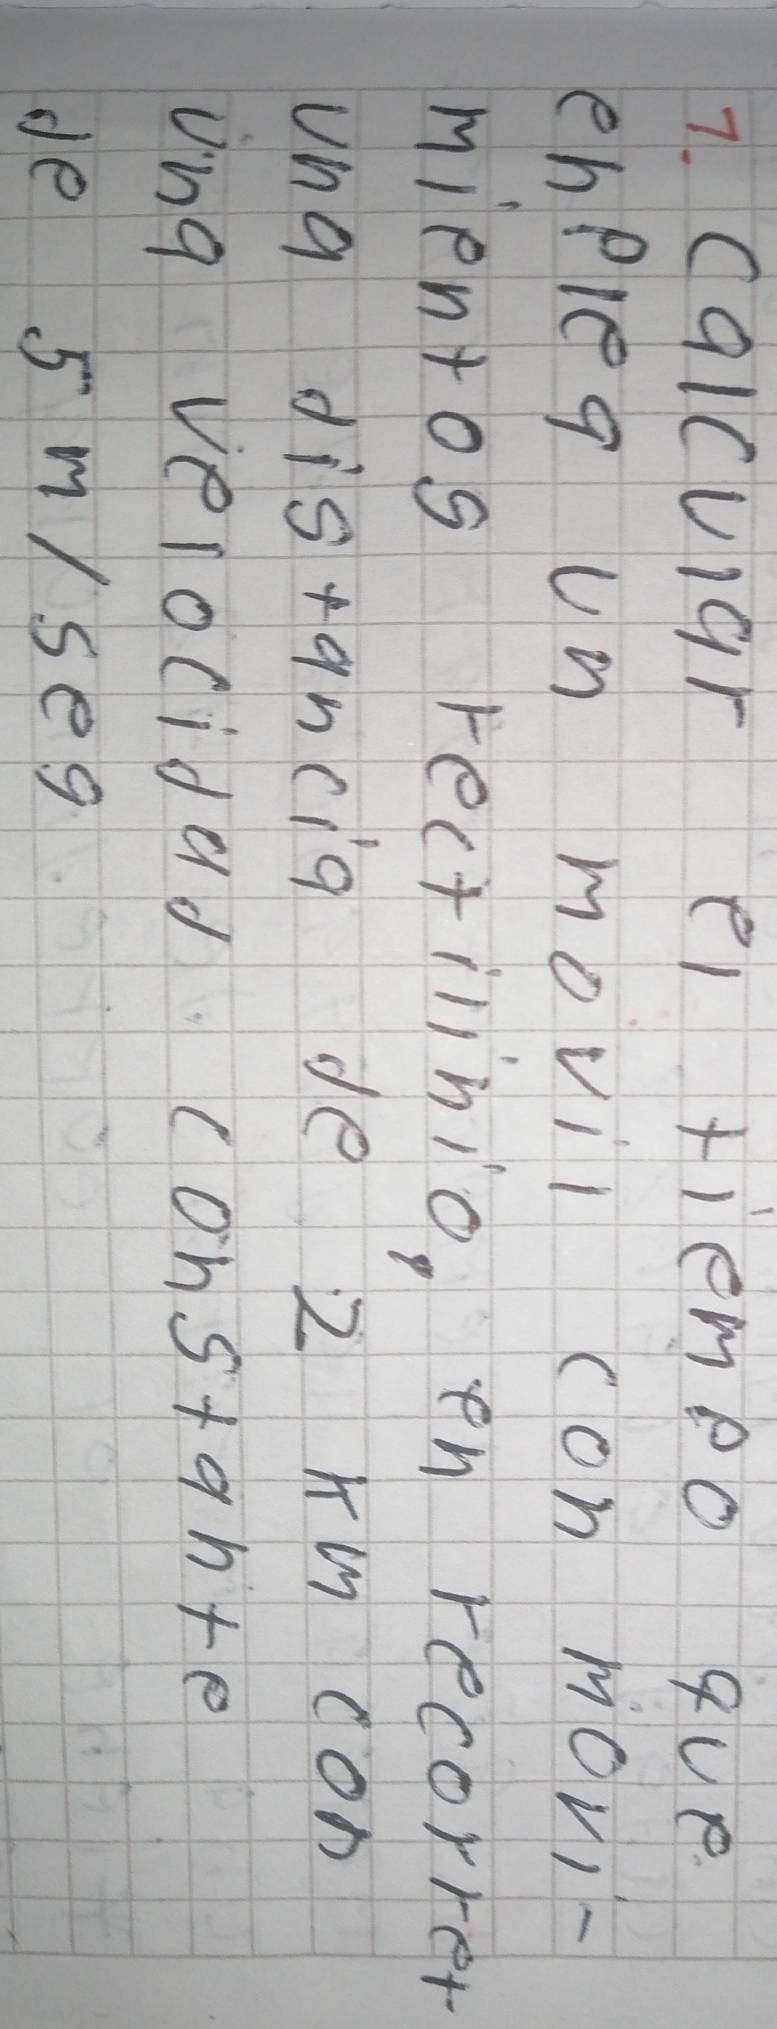 7. Calcular el tiempo que
enplea un movil con movi-
mientos rectilinio, en recorrer
una distancia de 2 km con
una velocidad constante
de 5 m/seg